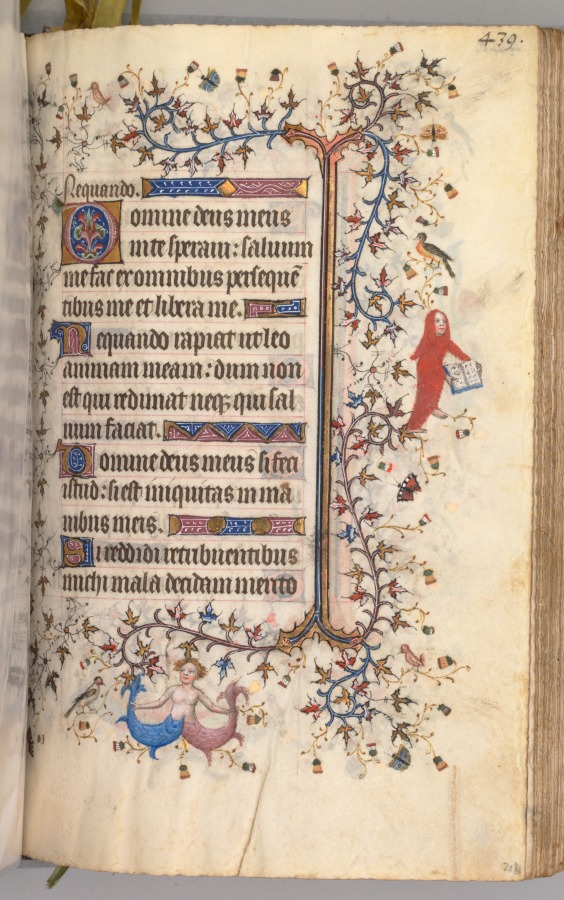 439.
Nequando.
Domine deus meus
in te speraui: saluum
me fac ex omnibus persequē
tibus me et libera me.
Nequando rapiat ut leo
animam meam: dum non
est qui redimat neq; qui sal
uum faciat.
Domine deus meus si feci
istud: si est iniquitas in ma
nibus meis.
Si reddidi retribuentibus
michi mala decidam merito